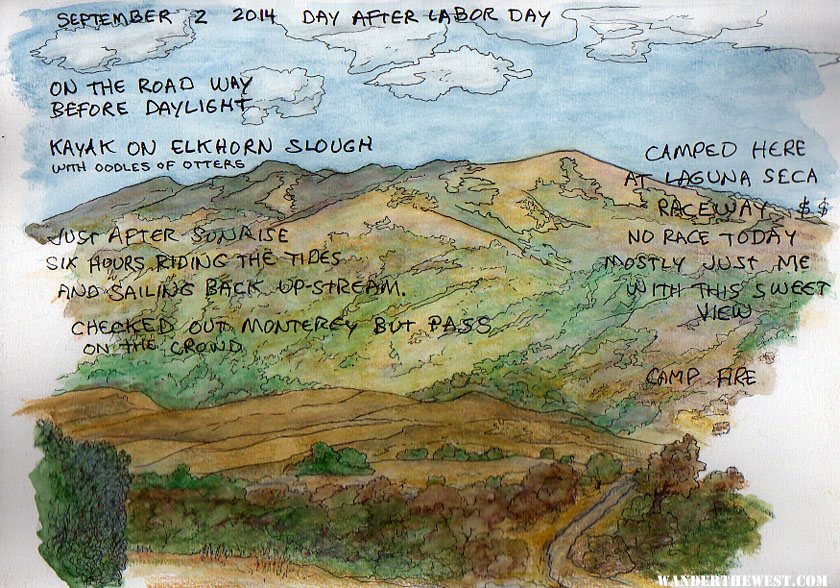 SEPTEMBER 2 2014 DAY AFTER LABOR DAY
ON THE ROAD WAY
BEFORE DAYLIGHT
KAYAK ON ELKHORN SLOUGH
WITH OODLES OF OTTERS
JUST AFTER SUNRISE
SIX HOURS RIDING THE TIDES
AND SAILING BACK UP-STREAM.
CHECKED OUT MONTEREY BUT PASS
ON THE CROWD
CAMPED HERE
AT LAGUNA SECA
RACEWAY $$
NO RACE TODAY
MOSTLY JUST ME
WITH THIS SWEET
VIEW
CAMP FIRE
WANDERTHEWEST.COM